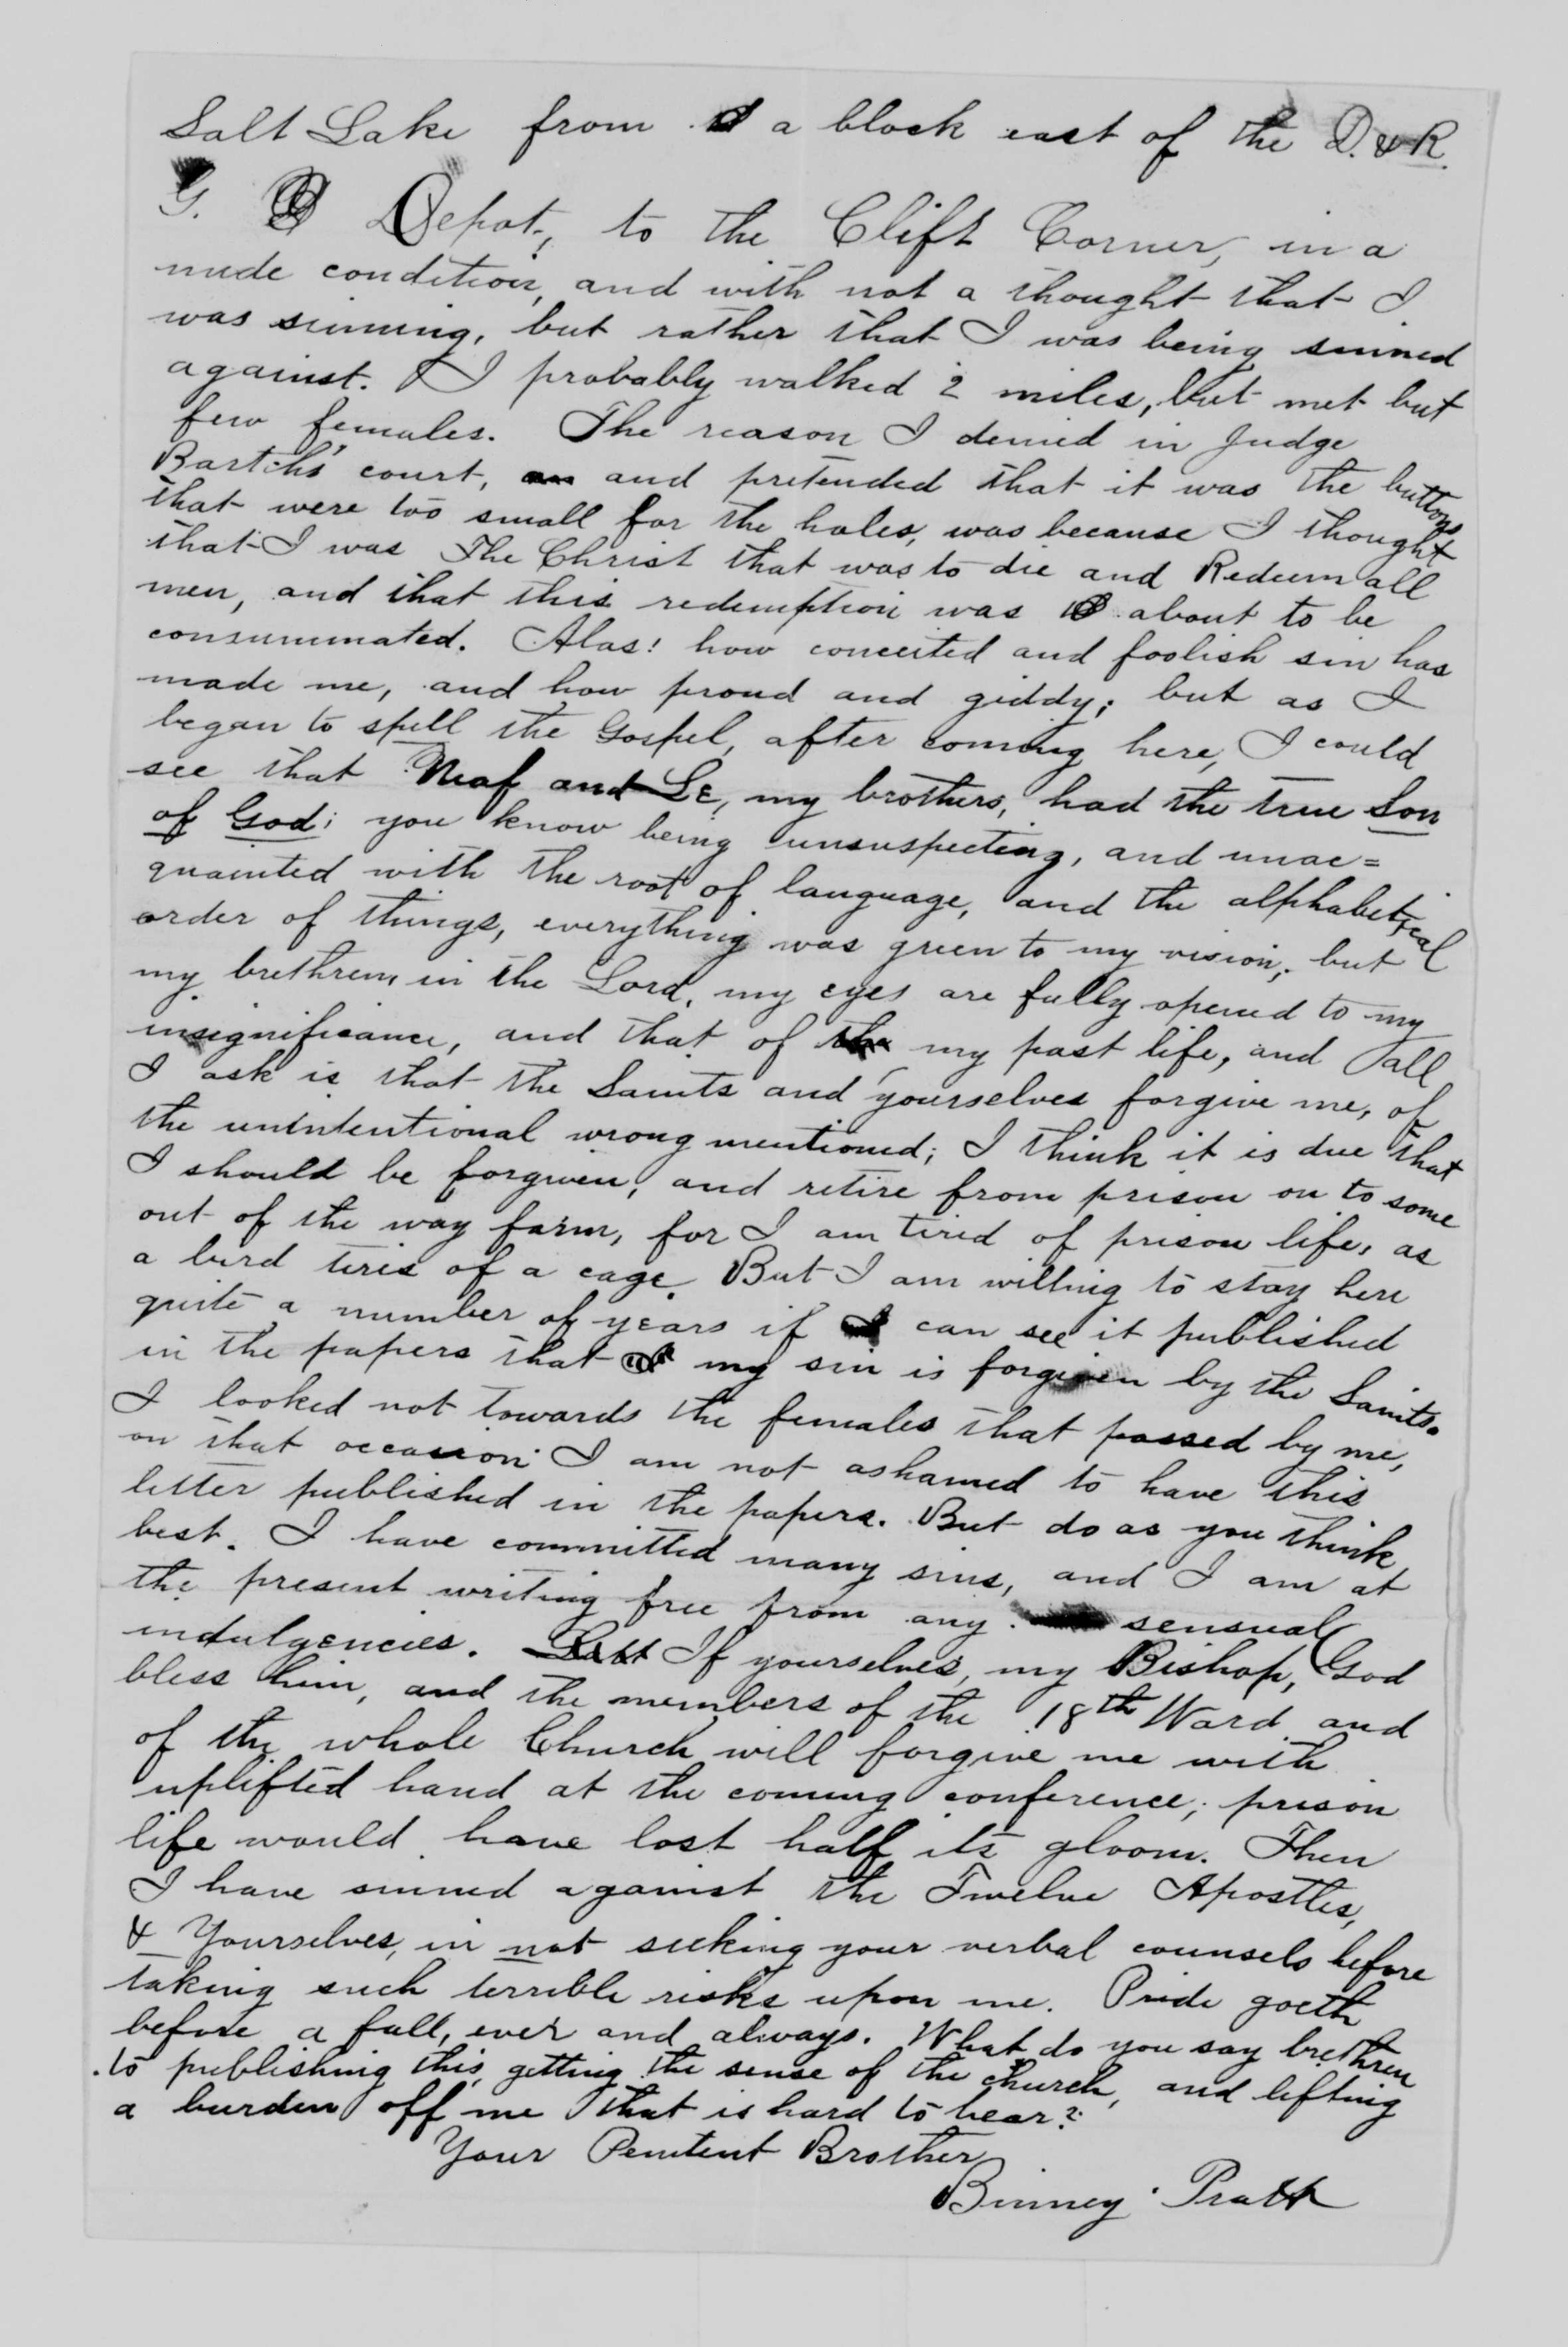 Salt Lake from a block east of the D. & R.
G. Depot, to the Clift Corner, in a
nude condition, and with not a thought that I
was sinning, but rather that I was being sinned
against. I probably walked 2 miles, but met but
few females. The reason I denied in Judge
Bartch's court, and pretended that it was the buttons
that were too small for the holes, was because I thought
that I was The Christ that was to die and Redeem all
men, and that this redemption was about to be
consummated. Alas! how conceited and foolish sin has
made me, and how proud and giddy; but as I
began to spell the Gospel, after coming here, I could
see that Neaf and Le, my brothers, had the true Son
of God; you know being unsuspecting, and unac=
quainted with the root of language, and the alphabetical
order of things, everything was green to my vision; but
my brethren in the Lord, my eyes are fully opened to my
insignificance, and that of my past life, and all
I ask is that the Saints and yourselves forgive me, of
the unintentional wrong mentioned; I think it is due that
I should be forgiven, and retire from prison on to some
out of the way farm, for I am tired of prison life, as
a bird tires of a cage. But I am willing to stay here
quite a number of years if I can see it published
in the papers that my sin is forgiven by the Saints.
I looked not towards the females that passed by me,
on that occasion. I am not ashamed to have this
letter published in the papers. But do as you think
best. I have committed many sins, and I am at
the present writing free from any sensual
indulgencies. If yourselves, my Bishop, God
bless him, and the members of the 18th Ward and
of the whole Church will forgive me with
uplifted hand at the coming conference; prison
life would have lost half its gloom. Then
I have sinned against the Twelve Apostles,
& Yourselves, in not seeking your verbal counsels before
taking such terrible risks upon me. Pride goeth
before a fall, ever and always. What do you say brethren
to publishing this, getting the sense of the church, and lifting
a burden off me that is hard to bear?
Your Penitent Brother
Binney Pratt